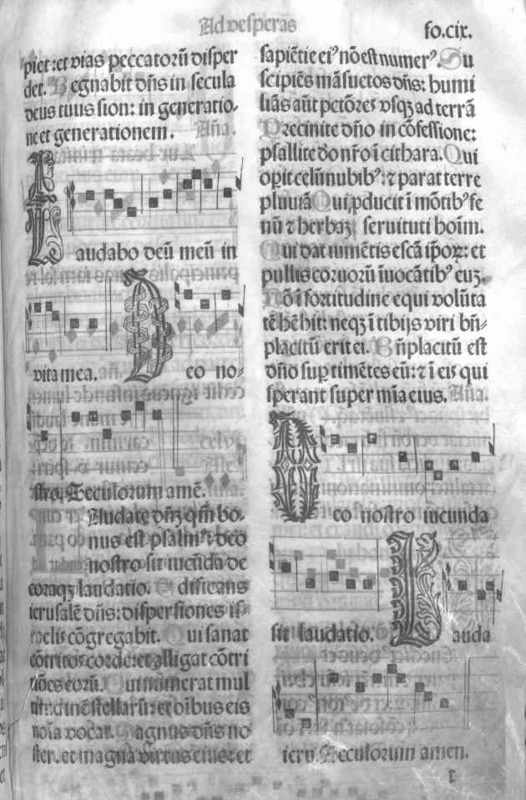 Ad vesperas
fo.cix.
piet: et vias peccatorū disper
det. Regnabit dn̄s in secula
deus tuus sion: in generatio⸗
ne et generationem. Aña.
Laudabo deū meū in
vita mea. Deo no⸗
stro. Seculorum amē.
Laudate dn̄ʒ qm̄ bo⸗
nus est psalm⁹: deo
nostro sit iucūda de
coraqʒ laudatio. Edificans
ierusalē dn̄s: dispersiones is⸗
raelis cōgregabit. Qui sanat
cōtritos corde: et alligat cōtri
tiōes eorū. Qui numerat mul
titudinē stellarū: et oībus eis
noīa vocat. Magnus dn̄s no
ster. et magna virtus eius: et
sapiētie ei⁹ nō est numer⁹. Su
scipiēs māsuetos dn̄s: humi
liās aūt petōres vsqʒ ad terrā
Precinite dn̄o in cōfessione:
psallite deo nr̄o ī cithara. Qui
opit celū nubib⁹: ⁊ parat terre
pluuiā Qui ꝓducit ī mōtib⁹ fe
nū ⁊ herbaʒ seruituti hoīm.
Qui dat iumētis escā ipoꝝ: et
pullis coruorū īuocātib⁹ eūʒ.
Nō ī fortitudine equi volūta
tē hēbit: neqʒ ī tibijs viri bn̄⸗
placitū erit ei. Bn̄placitū est
dn̄o suꝑ timētes eū: ⁊ ī eis qui
sperant super mīa eius. Aña.
Deo nostro iucunda
sit laudatio. Lauda
ieru. Seculorum amen.